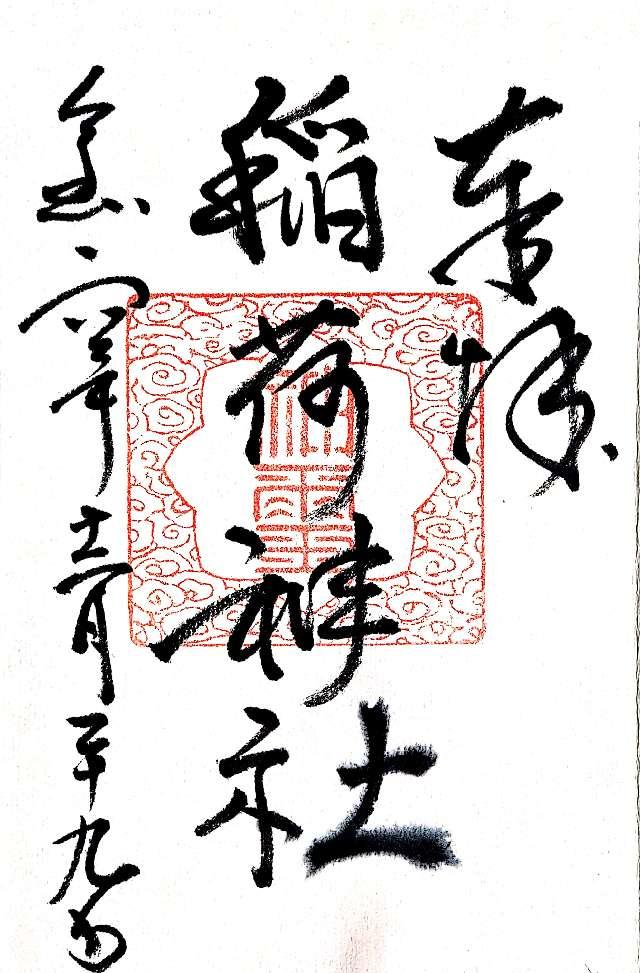 奉拝
稲荷神社
令和六年十二月二十九日